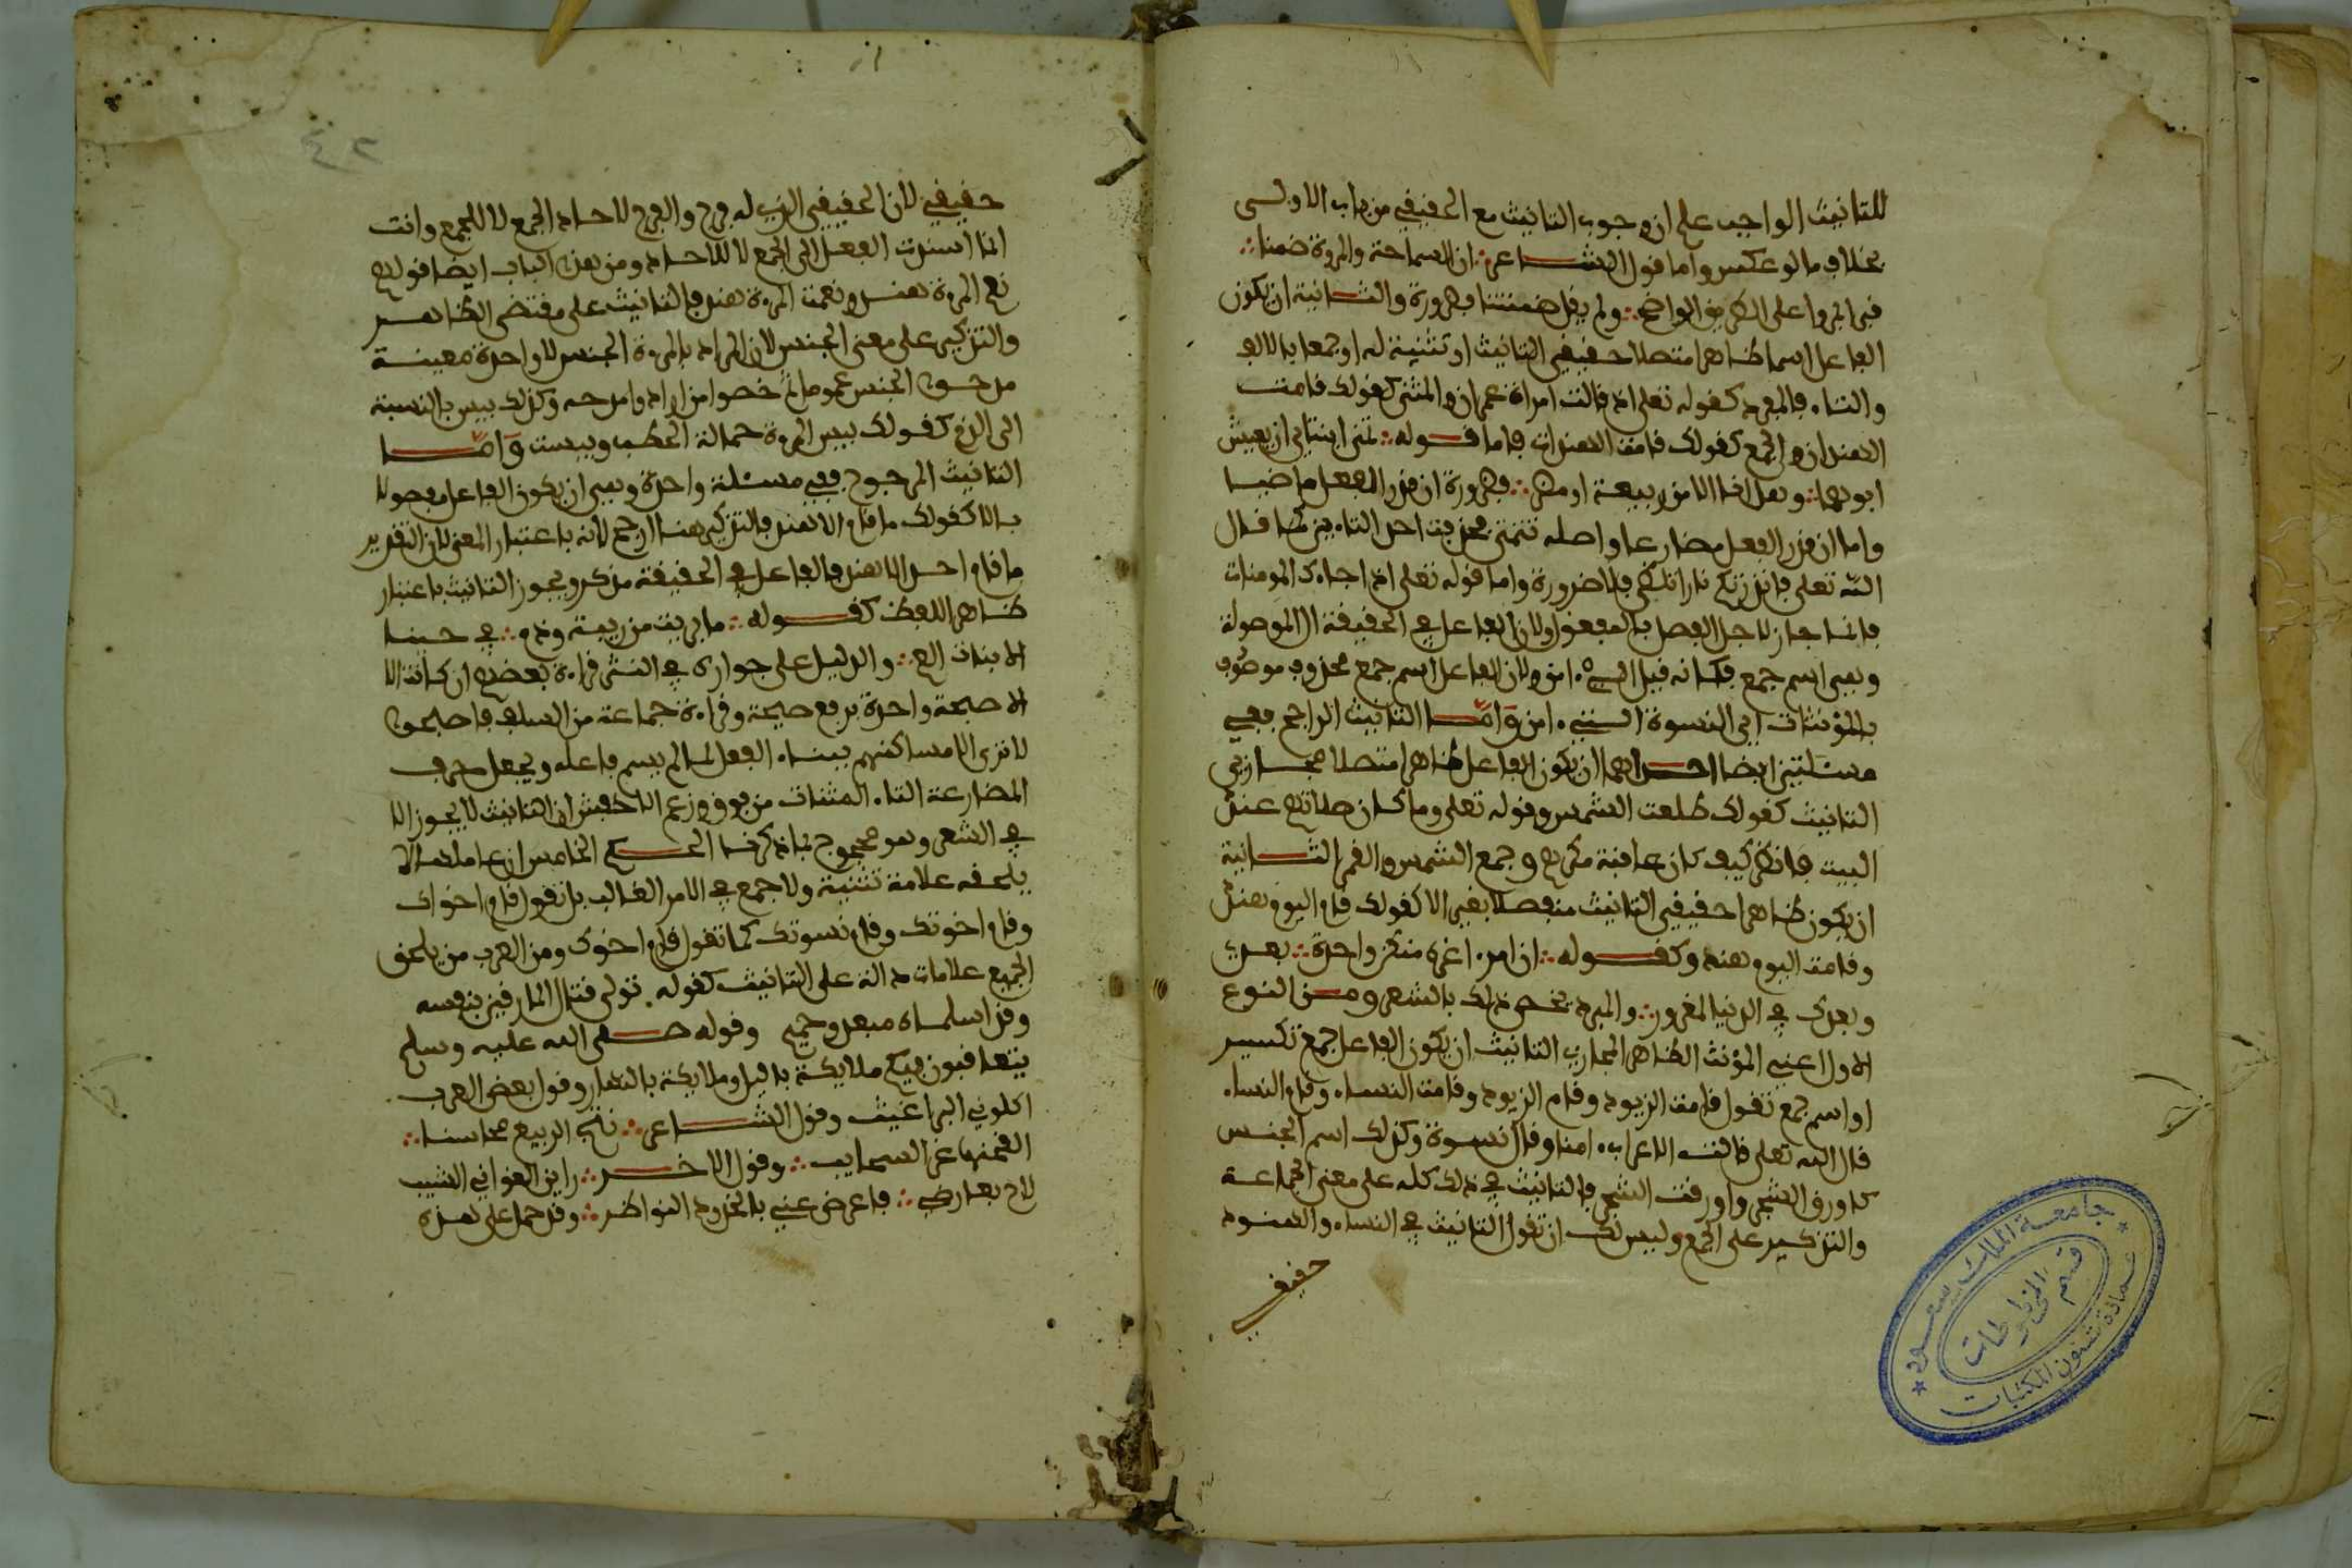 للتانيث الواجب على ان وجوب التانيث مع الحقيقي من باب الاولى
بخلاف ما لو عكس واما قول الشاعر ان السماحة والمروة ضمنا
قبرا بمروا على الطريق الواضح ولم يقل ضمنتا فضرورة والثانية ان يكون
الفاعل اسما ظاهرا متصلا حقيقي التانيث او تثنية له او جمعا بالالف
والتاء فالمفرد كقوله تعلى اذ قالت امراة عمران والمثنى كقولك قامت
الهندان والجمع كقولك قامت الهندات فاما قوله تمنى ابنتاي ان يعيش
ابوهما وهل انا الا من ربيعة او مضر فضرورة ان قدر الفعل ماضيا
واما ان قدر الفعل مضارعا واصله تتمنى فحذفت احدى التاءين كما قال
الله تعلى فانذرتكم نارا تلظى فلا ضرورة واما قوله تعلى اذا جاءك المومنات
فانما جاز لاجل الفصل بالمفعول او لان الفاعل في الحقيقة ال الموصولة
وهي اسم جمع فكانه قيل اللاتي ءامن او لان الفاعل اسم جمع محذوف موصوف
بالمؤنثات اي النسوة التي ءامن وامــا التانيث الراجح ففي
مسئلتين ايضا احداهما ان يكون الفاعل ظاهرا متصلا مجازي
التانيث كقولك طلعت الشمس وقوله تعلى وما كان صلاتهم عند
البيت فانظر كيف كان عاقبة مكرهم وجمع الشمس والقمر الثانية
ان يكون ظاهرا حقيقي التانيث منفصلا بغير الا كقولك قام اليوم هند
وقامت اليوم هند وكقوله ان امرءا غره منكن واحدة بعدي
وبعدك في الدنيا لمغرور والمبرد يخص ذلك بالشعر ومن النوع
الاول اعني المؤنث الظاهر المجازي التانيث ان يكون الفاعل جمع تكسير
او اسم جمع تقول قامت الزيود وقام الزيود وقامت النساء وقام النساء
قال الله تعلى قالت الاعراب ءامنا وقال نسوة وكذلك اسم الجنس
كاورق الشجر واورقت الشجر فالتانيث في ذلك كله على معنى الجماعة
والتذكير على الجمع وليس لك ان تقول التانيث في النساء والهنود
حقيقي
جامعة الملك سعود
قسم المخطوطات
عمادة شئون المكتبات
٤٢
حقيقي لان الحقيقي الذي له فرج والفرج لاحاد الجمع لا للجمع وانت
انما اسندت الفعل الى الجمع لا للاحاد ومن هذا الباب ايضا قولهم
نعم المرءة هند ونعمت المرءة هند فالتانيث على مقتضى الظاهر
والتذكير على معنى الجنس لان المراد بالمرءة الجنس لا واحدة معينة
مدحوا الجنس عموما ثم خصوا من ارادوا مدحه وكذلك بيس بالنسبة
الى الذم كقولك بيس المرءة حمالة الحطب وبيست وامــا
التانيث المرجوح ففي مسئلة واحدة وهي ان يكون الفاعل مفصولا
بالا كقولك ما قام الا هند فالتذكير هنا ارجح لانه باعتبار المعنى لان التقدير
ما قام احد الا هند فالفاعل في الحقيقة مذكر ويجوز التانيث باعتبار
ظاهر اللفظ كقوله ما بريت من ريبة وذم في حربنا
الا بنات العم والدليل على جوازه في النثر قراءة بعضهم ان كانت الا
الا صيحة واحدة برفع صيحة وقراءة جماعة من السلف فاصبحوا
لا ترى الا مساكنهم ببناء الفعل لما لم يسم فاعله وبجعل حرف
المضارعة التاء المثناة من فوق وزعم الاخفش ان التانيث لا يجوز الا
في الشعر وهو محجوج بما ذكرنا الحكم الخامس ان عاملهما لا
يلحقه علامة تثنية ولا جمع في الامر الغالب بل تقول قام اخواك
وقام اخوتك وقام نسوتك كما تقول قام اخوك ومن العرب من يلحق
الجميع علامات دالة على التانيث كقوله تولى قتال المارقين بنفسه
وقد اسلماه مبعد وحميم وقوله صلى الله عليه وسلم
يتعاقبون فيكم ملايكة باليل وملايكة بالنهار وقول بعض العرب
اكلوني البراغيث وقول الشاعر نتج الربيع محاسنا
القحنها غر السحايب وقول الاخر راين الغواني الشيب
لاح بعارضي فاعرضن عني بالخدود النواظر وقد حمل على هذه